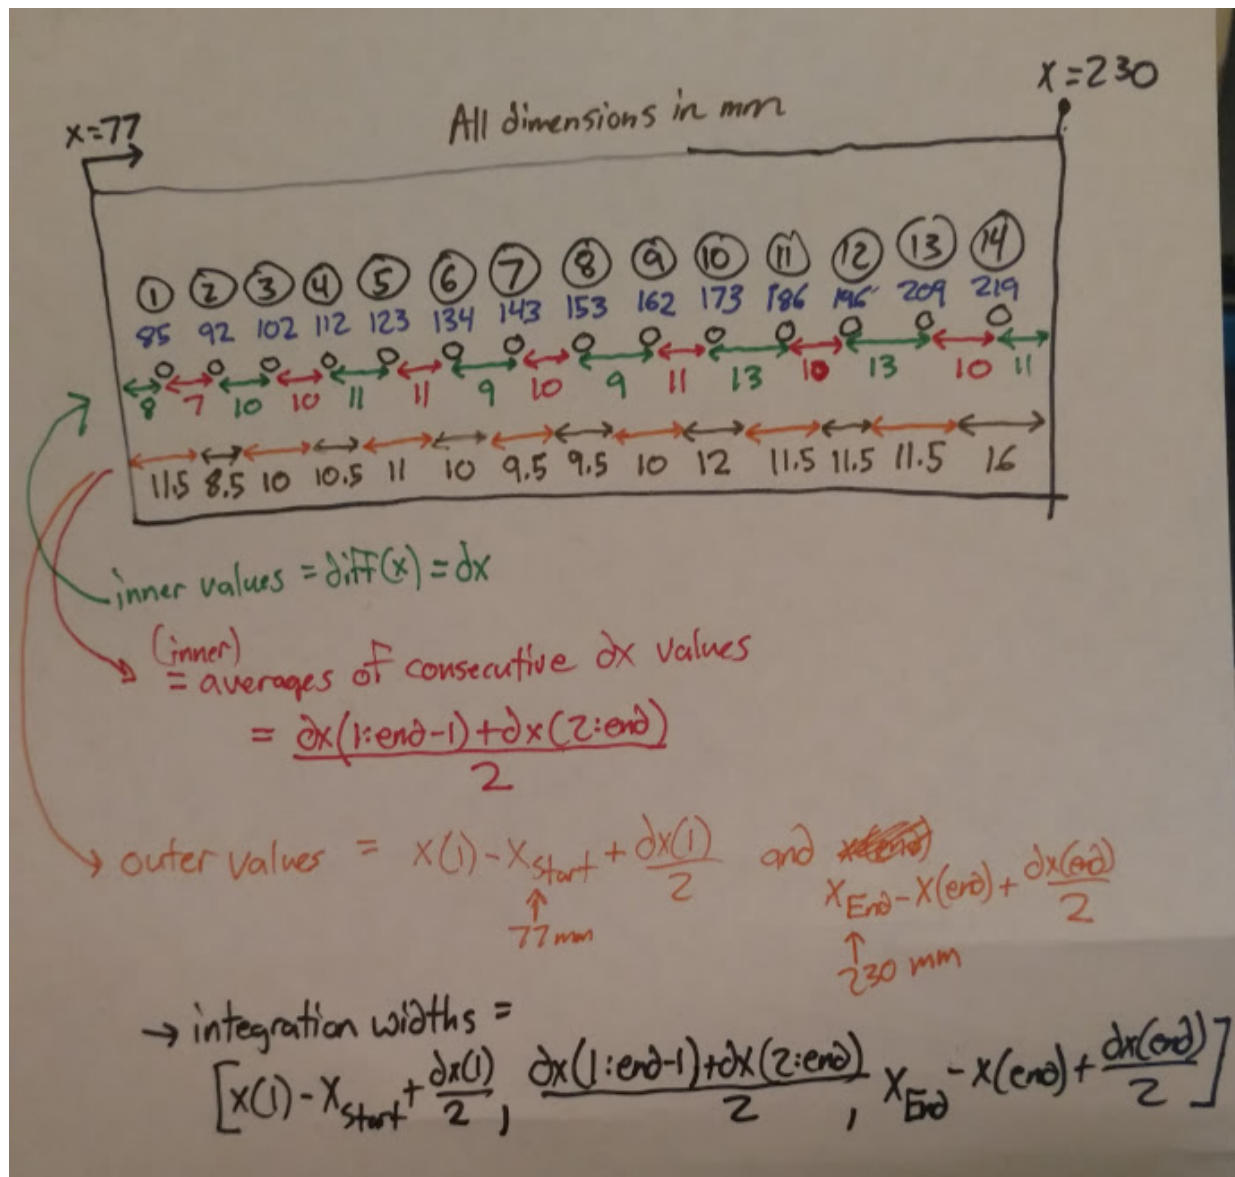 x=77
All dimensions in mm
x=230
1 2 3 4 5 6 7 8 9 10 11 12 13 14
85 92 102 112 123 134 143 153 162 173 186 196 209 219
8 7 10 10 11 11 9 10 9 11 13 10 13 10 11
11.5 8.5 10 10.5 11 10 9.5 9.5 10 12 11.5 11.5 11.5 16
inner values = diff(x) = dx
(inner)
= averages of consecutive dx values
= (dx(1:end-1)+dx(2:end))/2
outer values = x(1)-x_Start + dx(1)/2 and x_End-x(end)+dx(end)/2
77mm
230 mm
→ integration widths =
[x(1)-x_Start+dx(1)/2, (dx(1:end-1)+dx(2:end))/2, x_End-x(end)+dx(end)/2]